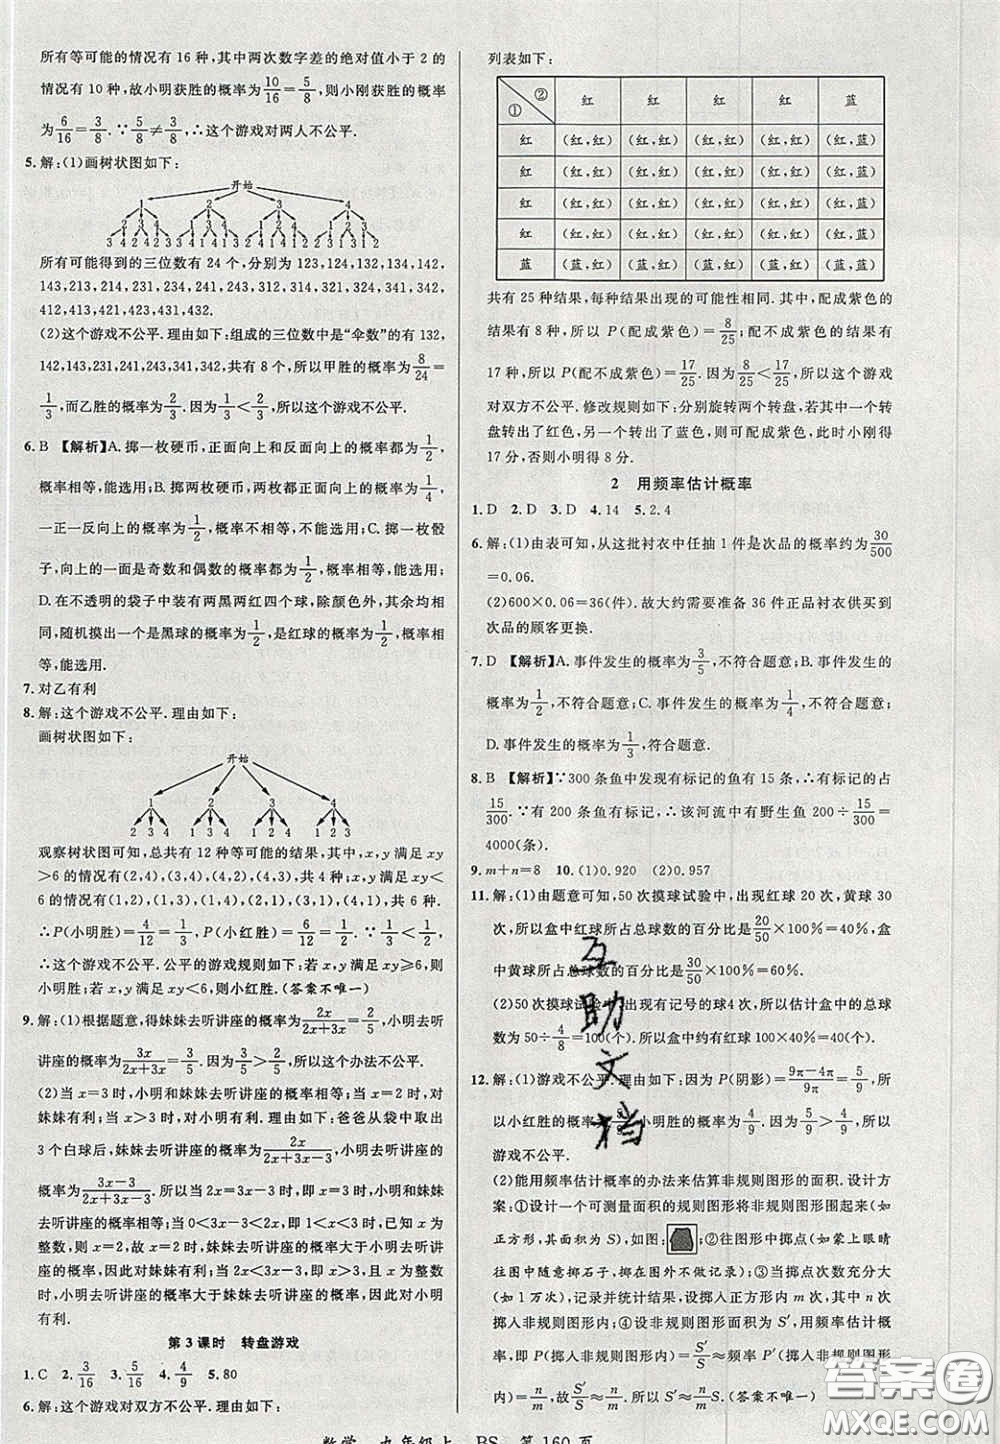 所有等可能的情况有 16 种,其中两次数字差的绝对值小于 2 的
情况有 10 种,故小明获胜的概率为10/16=5/8,则小刚获胜的概率
为6/16=3/8.∵5/8≠3/8,∴这个游戏对两人不公平.
5.解:(1)画树状图如下:
开始
1 2 3 4
2 3 4 1 3 4 1 2 4 1 2 3
3 4 2 4 2 3 3 4 1 4 1 3 2 4 1 4 1 2 2 3 1 3 1 2
所有可能得到的三位数有 24 个,分别为 123,124,132,134,142,
143,213,214,231,234,241,243,312,314,321,324,341,342,
412,413,421,423,431,432.
(2)这个游戏不公平.理由如下:组成的三位数中是“伞数”的有 132,
142,143,231,241,243,341,342,共有 8 个,所以甲胜的概率为8/24=
1/3,而乙胜的概率为2/3.因为1/3<2/3,所以这个游戏不公平.
6.B 【解析】A.掷一枚硬币,正面向上和反面向上的概率都为1/2,
概率相等,能选用;B.掷两枚硬币,都正面向上的概率为1/4,
一正一反向上的概率为1/2,概率不相等,不能选用;C.掷一枚骰
子,向上的一面是奇数和偶数的概率都为1/2,概率相等,能选用;
D.在不透明的袋子中装有两黑两红四个球,除颜色外,其余均相
同,随机摸出一个是黑球的概率为1/2,是红球的概率为1/2,概率相
等,能选用.
7.对乙有利
8.解:这个游戏不公平.理由如下:
画树状图如下:
开始
1 2 3 4
2 3 4 1 3 4 1 2 4 1 2 3
观察树状图可知,总共有 12 种等可能的结果,其中,x,y 满足 xy
>6 的情况有(2,4),(3,4),(4,2),(4,3),共 4 种;x,y 满足 xy<
6 的情况有(1,2),(1,3),(1,4),(2,1),(3,1),(4,1),共 6 种.
∴P(小明胜)=4/12=1/3,P(小红胜)=6/12=1/2.∵1/3<1/2,∴这个
游戏不公平.公平的游戏规则如下:若 x,y 满足 xy≥6,则小明胜;
若 x,y 满足 xy<6,则小红胜.(答案不唯一)
9.解:(1)根据题意,得妹妹去听讲座的概率为2x/(2x+3x)=2/5,小明去听
讲座的概率为3x/(2x+3x)=3/5.因为3/5>2/5,所以这个办法不公平.
(2)当 x=3 时,对小明和妹妹都公平;当 x>3 时,对妹妹有利;当 x<3 时,对小明有利.理由如下:爸爸从袋中取出
3 个白球后,妹妹去听讲座的概率为2x/(2x+3x-3),小明去听讲座的
概率为(3x-3)/(2x+3x-3).所以当 2x=3x-3 时,即 x=3 时,小明和妹妹
去听讲座的概率相等;当 0<3x-3<2x 时,即 1<x<3,已知 x 为
整数,则 x=2 时,妹妹去听讲座的概率大于小明去听讲座的概
率,因此对妹妹有利;当 3x-3>2x 时,即 x>3,已知 x 为整数,小明
去听讲座的概率大于妹妹去听讲座的概率,因此对小明
有利.
第 3 课时 转盘游戏
1.C 2.3/16 3.5/16 4.4/9 5.80
6.解:这个游戏对双方不公平.
列表如下:
② ① 红 红 红 红 蓝
红 (红,红) (红,红) (红,红) (红,红) (红,蓝)
红 (红,红) (红,红) (红,红) (红,红) (红,蓝)
红 (红,红) (红,红) (红,红) (红,红) (红,蓝)
红 (红,红) (红,红) (红,红) (红,红) (红,蓝)
蓝 (蓝,红) (蓝,红) (蓝,红) (蓝,红) (蓝,蓝)
共有 25 种结果,每种结果出现的可能性相同.其中,配成紫色的
结果有 8 种,所以 P(配成紫色)=8/25;配不成紫色的结果有
17 种,所以 P(配不成紫色)=17/25.因为8/25<17/25,所以这个游戏
对双方不公平.修改规则如下:分别旋转两个转盘,若其中一个转
盘转出了红色,另一个转出了蓝色,则可配成紫色,此时小刚得
17 分,否则小明得 8 分.
2 用频率估计概率
1.D 2.D 3.D 4.14 5.2.4
6.解:(1)由表可知,从这批衬衣中任抽 1 件是次品的概率约为30/500
=0.06.
(2)600×0.06=36(件).故大约需要准备 36 件正品衬衣供买到
次品的顾客更换.
7.D 【解析】A.事件发生的概率为3/5,不符合题意;B.事件发生的
概率为1/2,不符合题意;C.事件发生的概率为1/4,不符合题意;
D.事件发生的概率为1/3,符合题意.
8.B 【解析】∵300 条鱼中发现有标记的鱼有 15 条,∴有标记的占
15/300.∵有 200 条鱼有标记,∴该河流中有野生鱼 200÷15/300=
4000(条).
9.m+n=8 10.(1)0.920 (2)0.957
11.解:(1)由题意可知,50 次摸球试验中,出现红球 20 次,黄球 30
次,所以盒中红球所占总球数的百分比是20/50×100%=40%,盒
中黄球所占总球数的百分比是30/50×100%=60%.
(2)50 次摸球试验中,出现有记号的球4 次,所以估计盒中的总球
数为 50÷4/8=100(个).所以盒中约有红球 100×40%=40(个).
12.解:(1)游戏不公平.理由如下:因为 P(阴影)=(9π-4π)/9π=5/9,所
以小红胜的概率5/9,小明胜的概率为4/9.因为4/9<5/9,所以
游戏不公平.
(2)能用频率估计概率的办法来估算非规则图形的面积.设计方
案:①设计一个可测量面积的规则图形将非规则图形围起来(如
正方形,其面积为 S),如图: ;②往图形中掷点(如蒙上眼睛
往图中随意掷石子,掷在图外不做记录);③当掷点次数充分大
(如 1万次),记录并统计结果,设掷入正方形内 m 次,其中 n 次
掷入非规则图形内;④设非规则图形面积为 S′,用频率估计概
率,即 P(掷入非规则图形内)=S′/S≈频率 P′(掷入非规则图形
内)=n/m,故S′/S≈n/m,所以 S′≈Sn/m.(答案不唯一)
数学 九年级上 BS 第 160 页
互助文档
答案圈
MXQE.COM